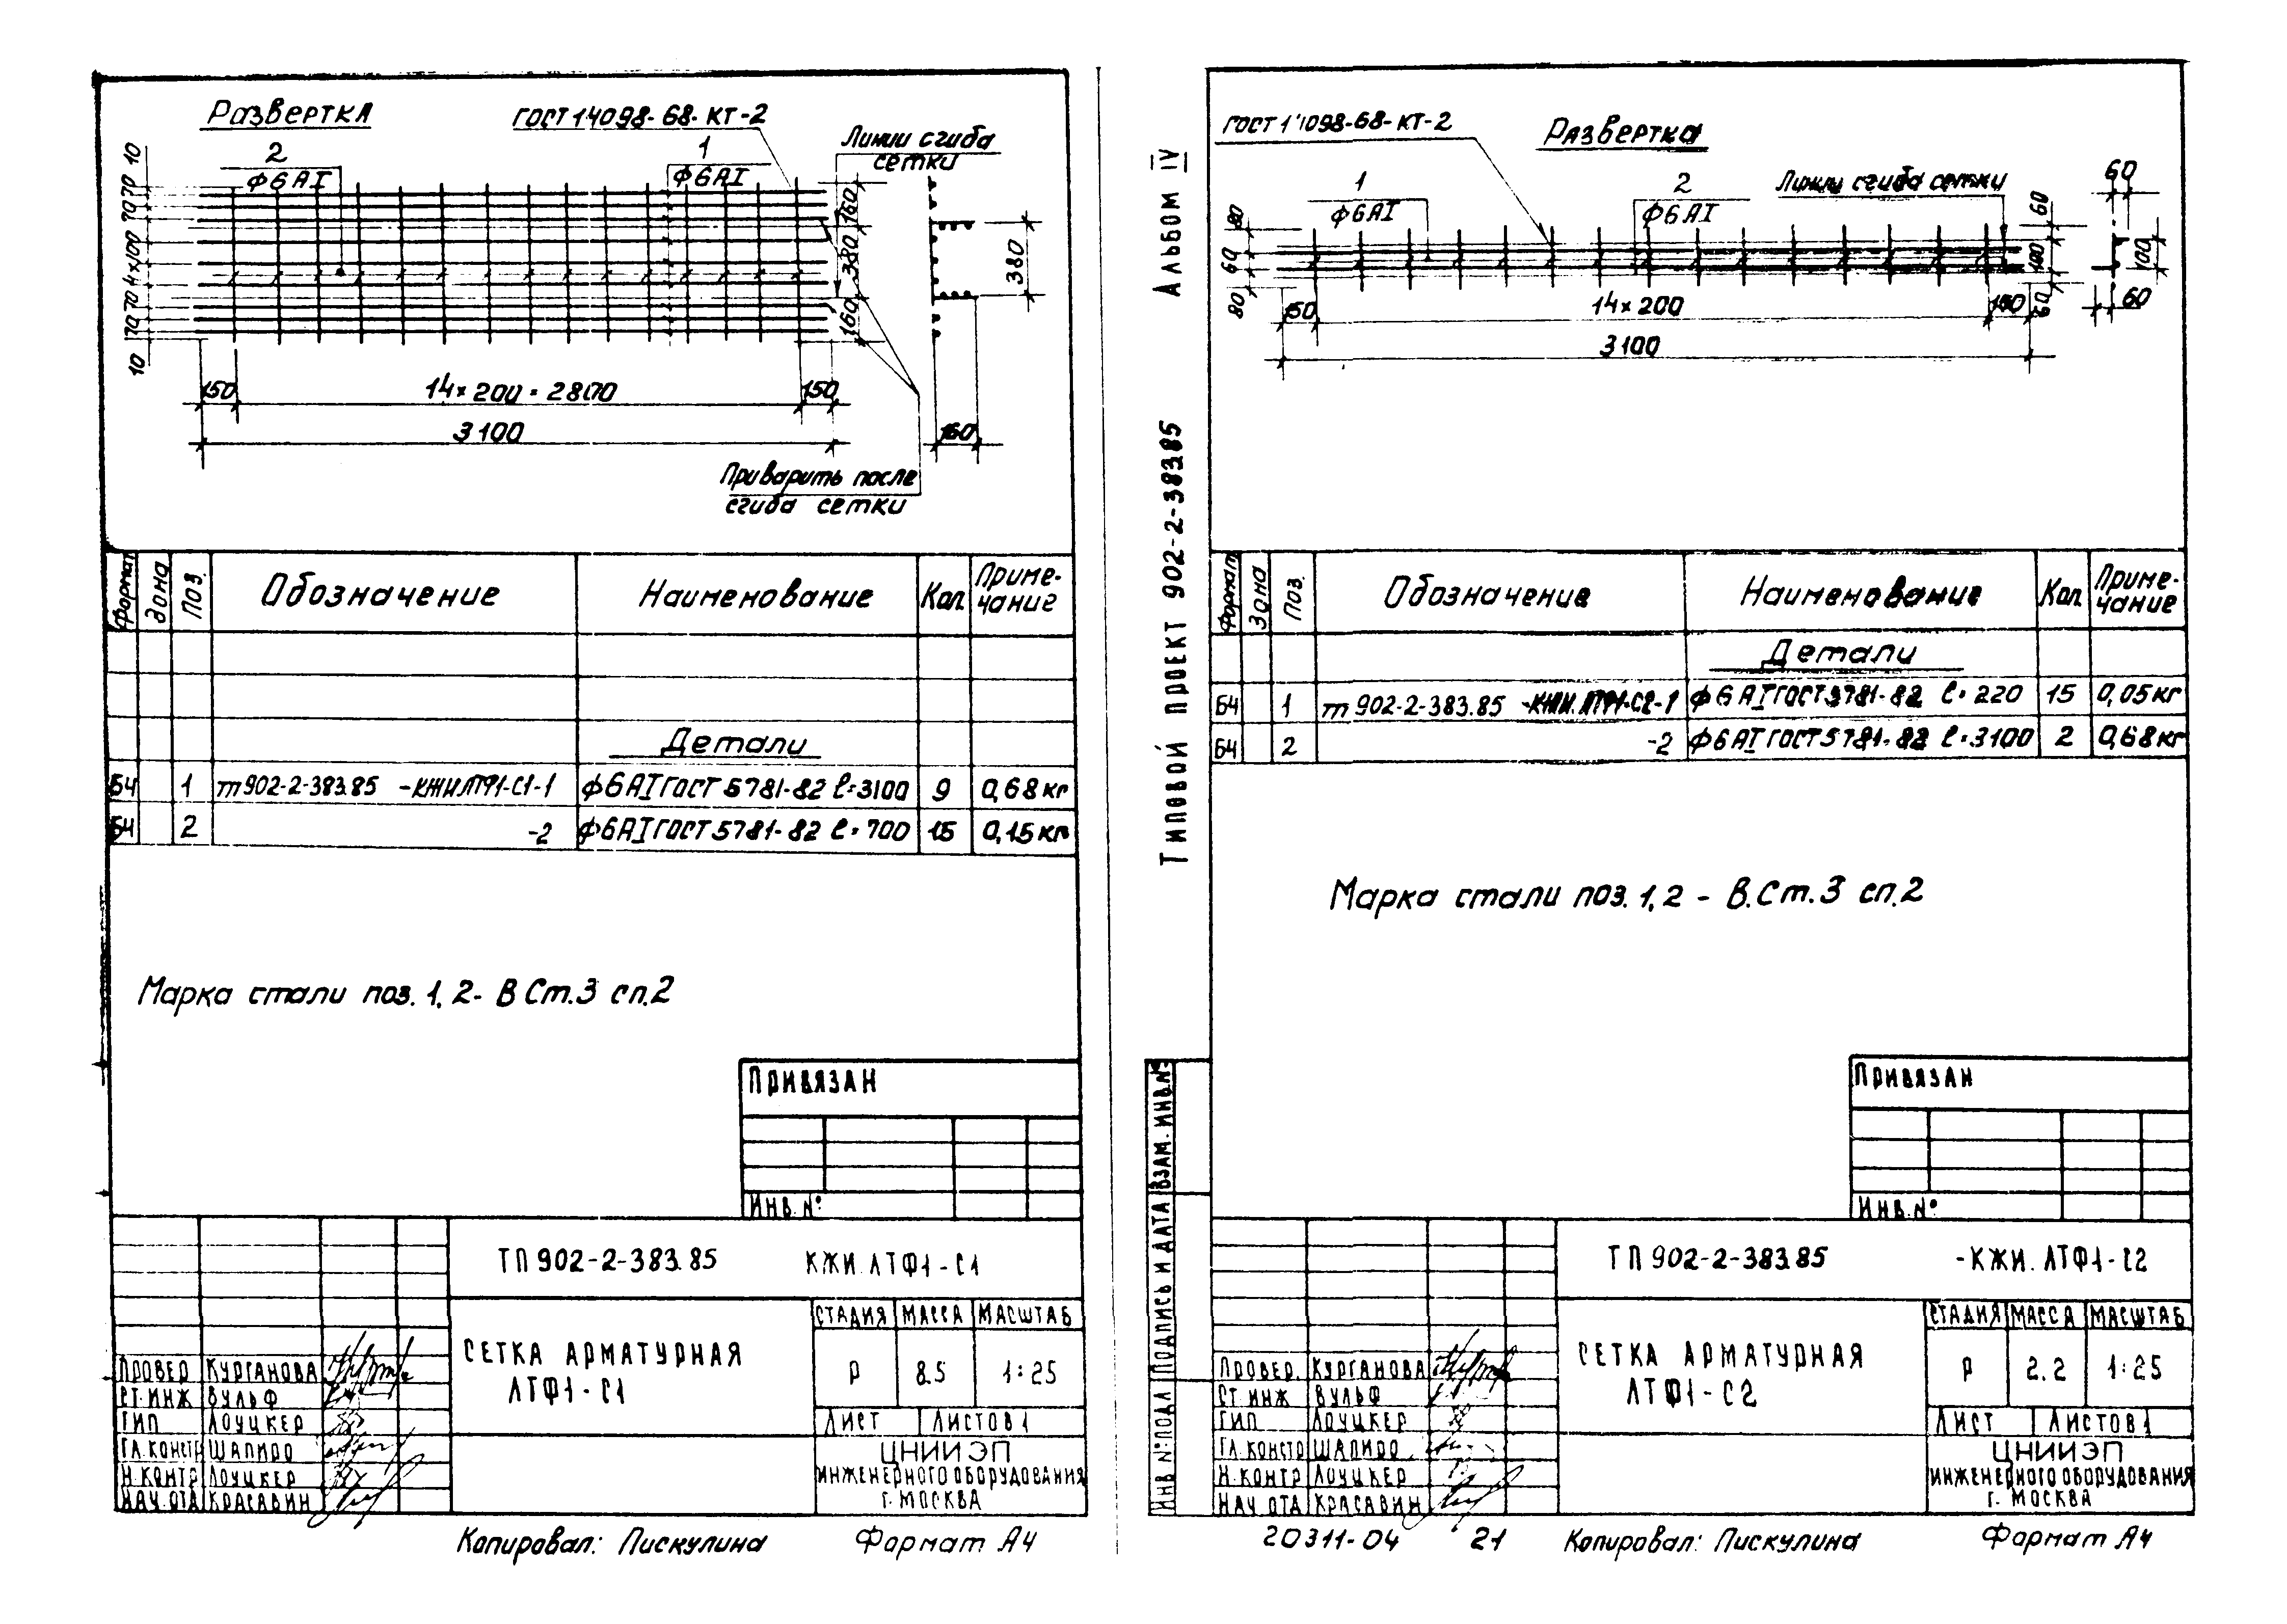 Развертка
ГОСТ 14098-68-КТ-2
Линии сгиба
сетки
2
ф6АI
1
ф6АI
10
70
70
4×100
70
70
10
160
380
160
380
160
150
14×200=2800
150
3100
Приварить после
сгиба сетки
Формат Зона Поз. Обозначение Наименование Кол. Приме-
чание
Детали
Б4 1 тп902-2-383.85 -КЖИ.ЛТФ1-С1-1 ф6АI ГОСТ 5781-82 l=3100 9 0,68кг
Б4 2 -2 ф6АI ГОСТ 5781-82 l=700 15 0,15кг
Марка стали поз. 1, 2- В Ст.3 сп.2
Привязан
Инв. №
ТП 902-2-383.85 КЖИ.ЛТФ1-С1
Сетка арматурная
ЛТФ1-С1
Стадия Масса Масштаб
Р 8.5 1:25
Лист Листов 1
ЦНИИЭП
инженерного оборудования
г. Москва
Провер Курганова
Ст.инж Вульф
ГИП Лоуцкер
Гл.констр Шапиро
Н.контр Лоуцкер
Нач.отд Красавин
Копировал: Пискулина Формат А4
Альбом IV
Типовой проект 902-2-383.85
ГОСТ 14098-68-КТ-2
Развертка
1
ф6АI
2
ф6АI
Линии сгиба сетки
80
60
80
60
100
60
60
100
60
150
14×200
150
3100
Формат Зона Поз. Обозначение Наименование Кол. Приме-
чание
Детали
Б4 1 тп 902-2-383.85 -КЖИ.ЛТФ1-С2-1 ф6АI ГОСТ 5781-82 l=220 15 0,05кг
Б4 2 -2 ф6АI ГОСТ 5781-82 l=3100 2 0,68кг
Марка стали поз. 1, 2 - В.Ст.3 сп.2
Привязан
Инв. №
Инв №подл Подпись и дата Взам. инв.№
ТП 902-2-383.85 -КЖИ.ЛТФ1-С2
Сетка арматурная
ЛТФ1-С2
Стадия Масса Масштаб
Р 2.2 1:25
Лист Листов 1
ЦНИИЭП
инженерного оборудования
г. Москва
Провер. Курганова
Ст.инж Вульф
ГИП Лоуцкер
Гл.констр Шапиро
Н.контр Лоуцкер
Нач.отд Красавин
20311-04 21 Копировал: Пискулина Формат А4